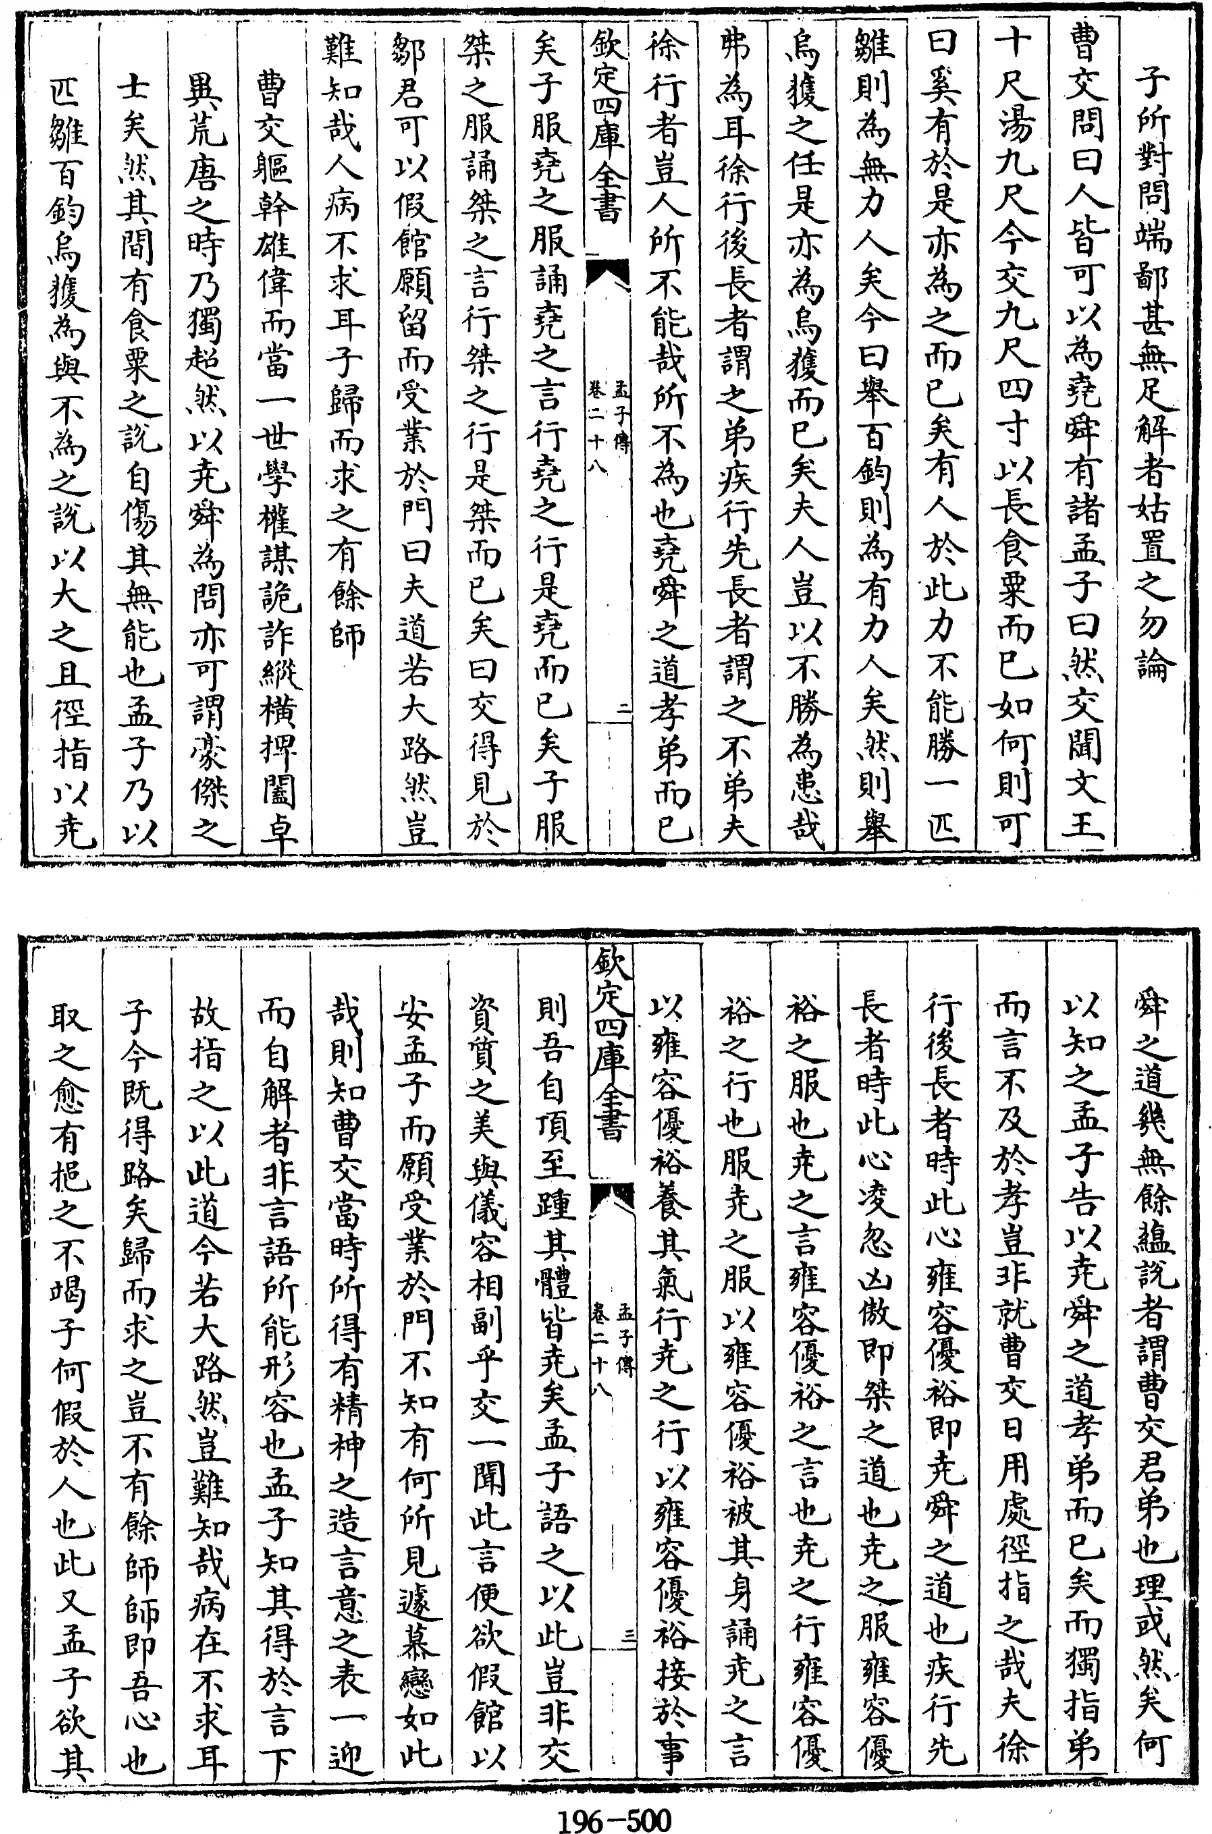 子所對問端鄙甚無足解者姑置之勿論
曹交問曰人皆可以為堯舜有諸孟子曰然交聞文王
十尺湯九尺今交九尺四寸以長食粟而已如何則可
曰奚有於是亦為之而已矣有人於此力不能勝一匹
雛則為無力人矣今曰舉百鈞則為有力人矣然則舉
烏獲之任是亦為烏獲而已矣夫人豈以不勝為患哉
弗為耳徐行後長者謂之弟疾行先長者謂之不弟夫
徐行者豈人所不能哉所不為也堯舜之道孝弟而已
欽定四庫全書
孟子傳
卷二十八
二
矣子服堯之服誦堯之言行堯之行是堯而已矣子服
桀之服誦桀之言行桀之行是桀而已矣曰交得見於
鄒君可以假館願留而受業於門曰夫道若大路然豈
難知哉人病不求耳子歸而求之有餘師
曹交軀幹雄偉而當一世學權謀詭詐縱橫捭闔卓
異荒唐之時乃獨超然以尭舜為問亦可謂豪傑之
士矣然其間有食粟之說自傷其無能也孟子乃以
匹雛百鈞烏獲為與不為之說以大之且徑指以尭
舜之道幾無餘蘊說者謂曹交君弟也理或然矣何
以知之孟子告以尭舜之道孝弟而已矣而獨指弟
而言不及於孝豈非就曹交日用處徑指之哉夫徐
行後長者時此心雍容優裕即尭舜之道也疾行先
長者時此心凌忽凶傲即桀之道也尭之服雍容優
裕之服也尭之言雍容優裕之言也尭之行雍容優
裕之行也服尭之服以雍容優裕被其身誦尭之言
以雍容優裕養其氣行尭之行以雍容優裕接於事
欽定四庫全書
孟子傳
卷二十八
三
則吾自頂至踵其體皆尭矣孟子語之以此豈非交
資質之美與儀容相副乎交一聞此言便欲假館以
安孟子而願受業於門不知有何所見遽慕戀如此
哉則知曹交當時所得有精神之造言意之表一迎
而自解者非言語所能形容也孟子知其得於言下
故指之以此道今若大路然豈難知哉病在不求耳
子今既得路矣歸而求之豈不有餘師師即吾心也
取之愈有挹之不竭子何假於人也此又孟子欲其
196-500